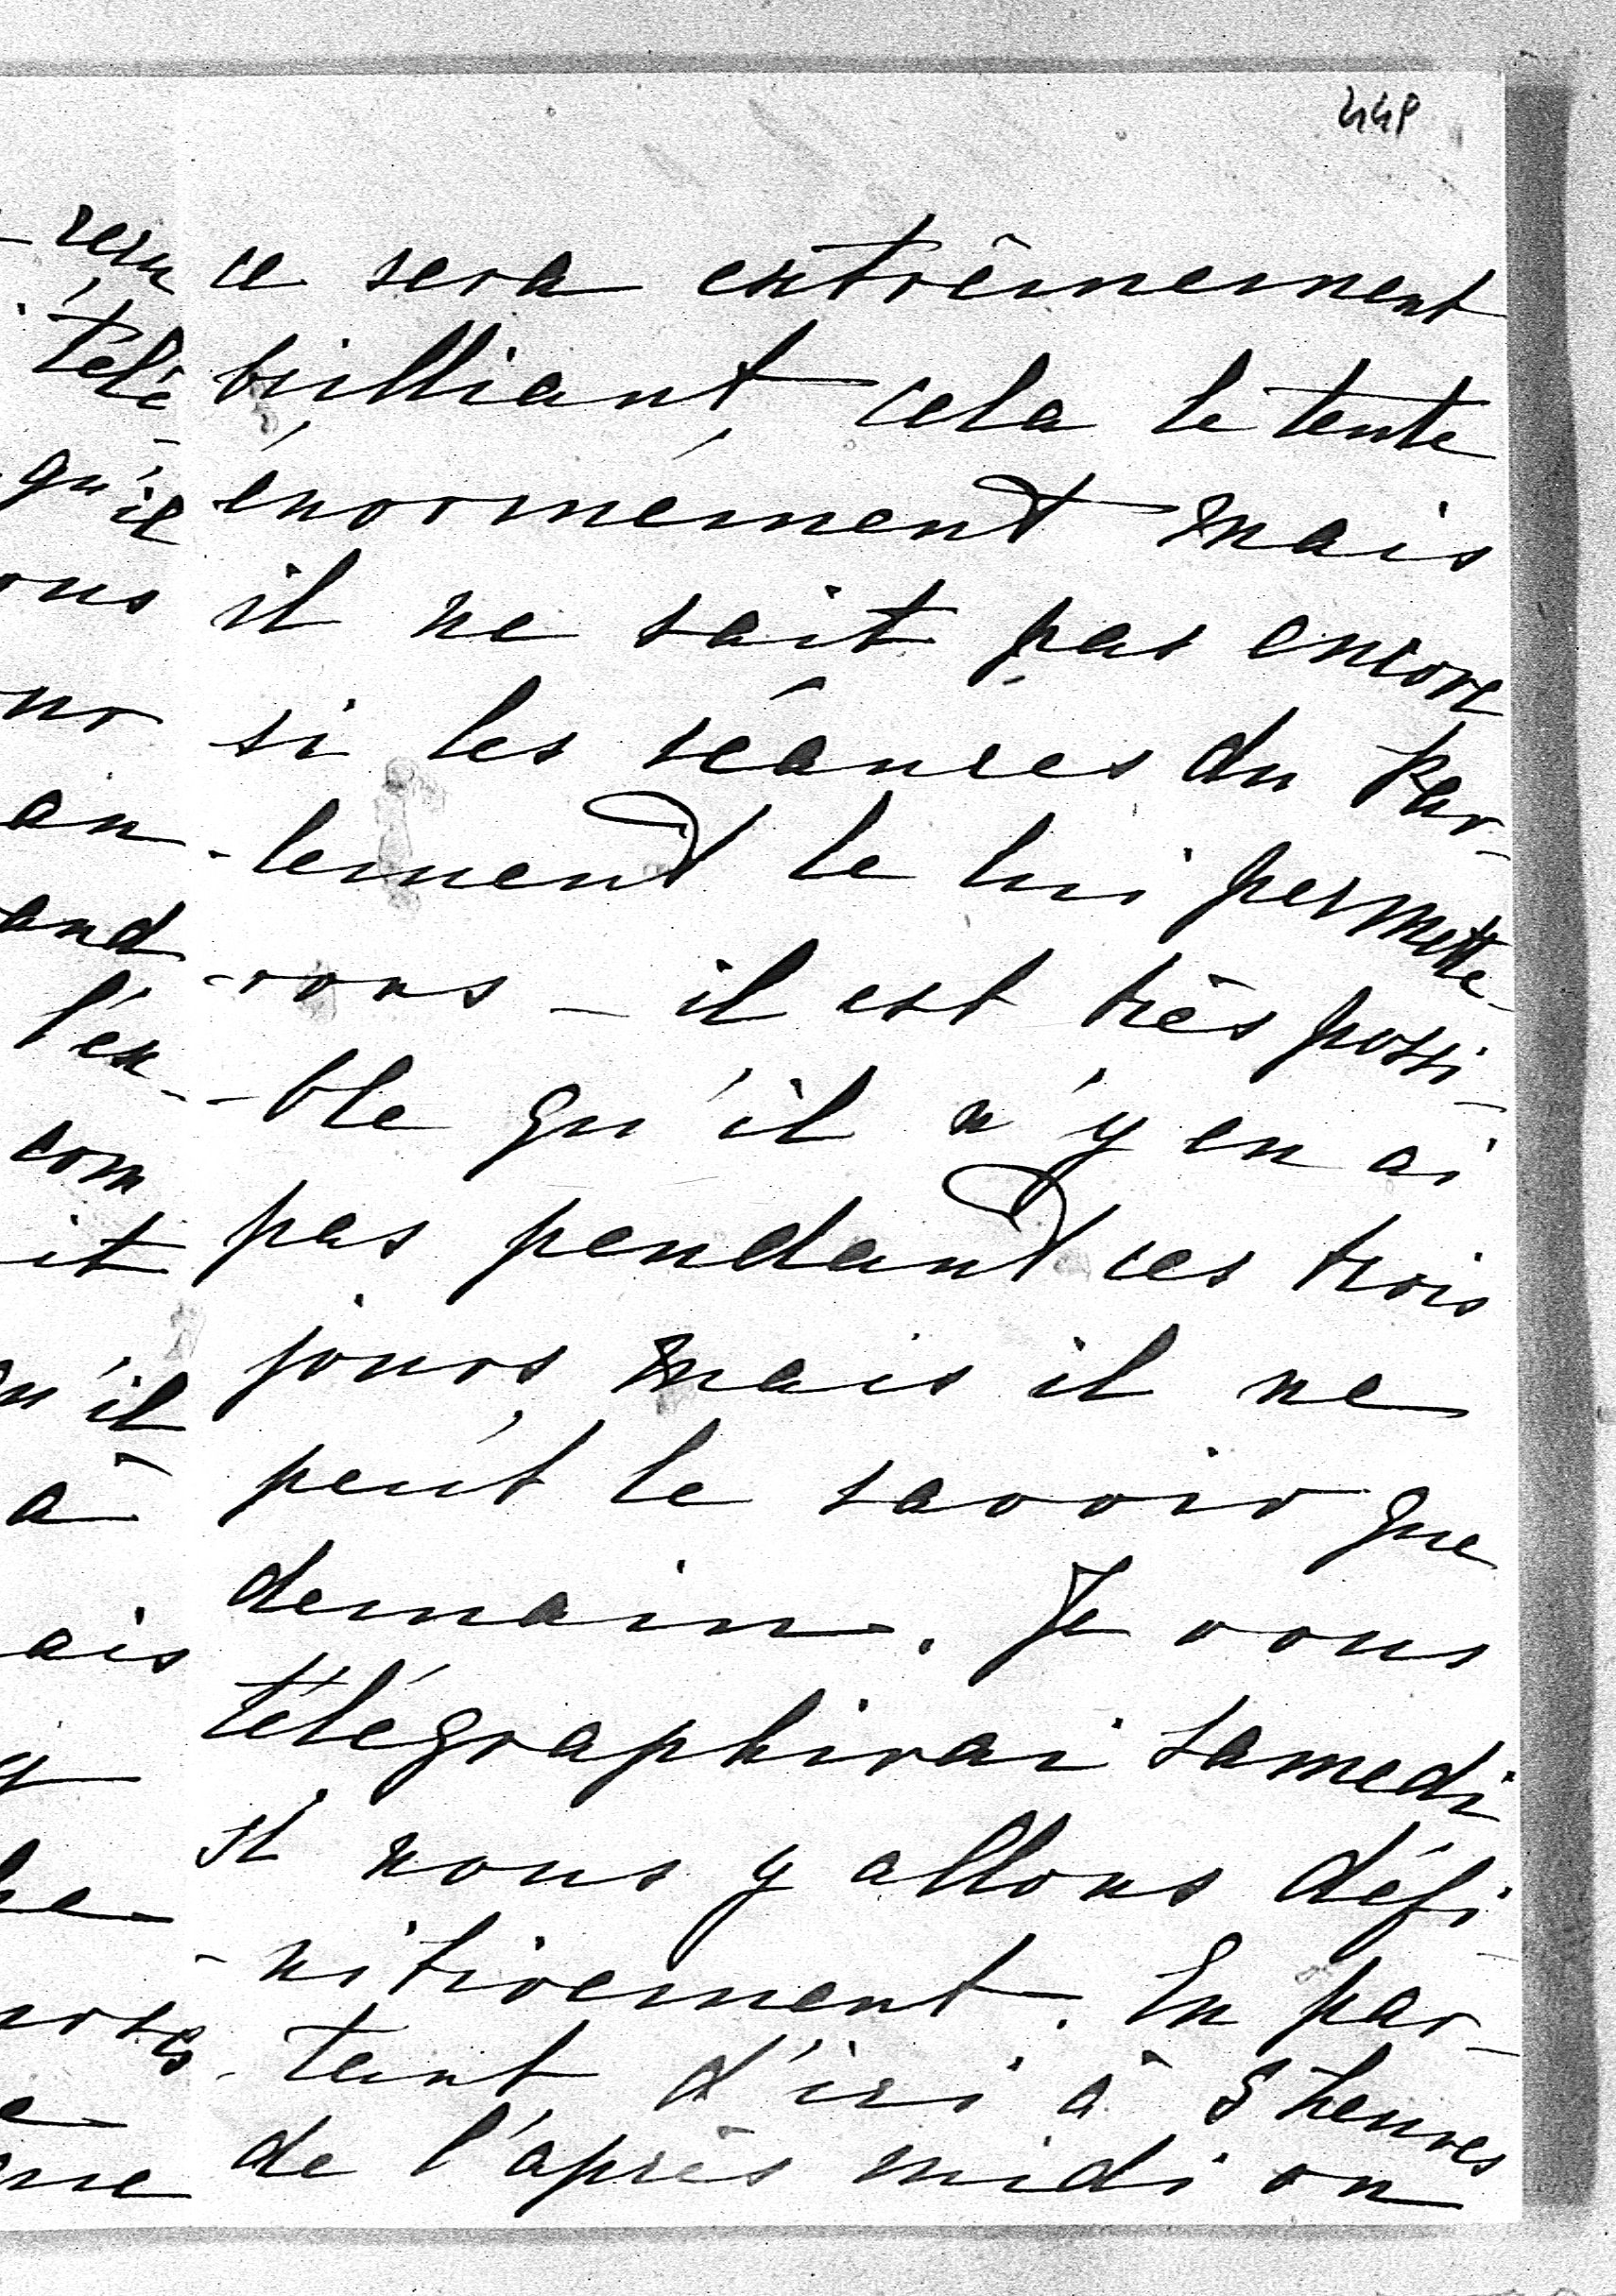 448
ce sera extrêmement
brilliant, cela le tente
énormément mais
il ne sait pas encore
si les séances du Par-
-lement le lui permette-
-rons - il est très possi-
-ble qu'il n'y en ai
pas pendant ces trois
jours, mais il ne
peut le savoir que
demain. Je vous
télégraphirai samedi
si nous y allons défi-
-nitivement. En par-
-tant d'ici à 5 heures
de l'après midi on